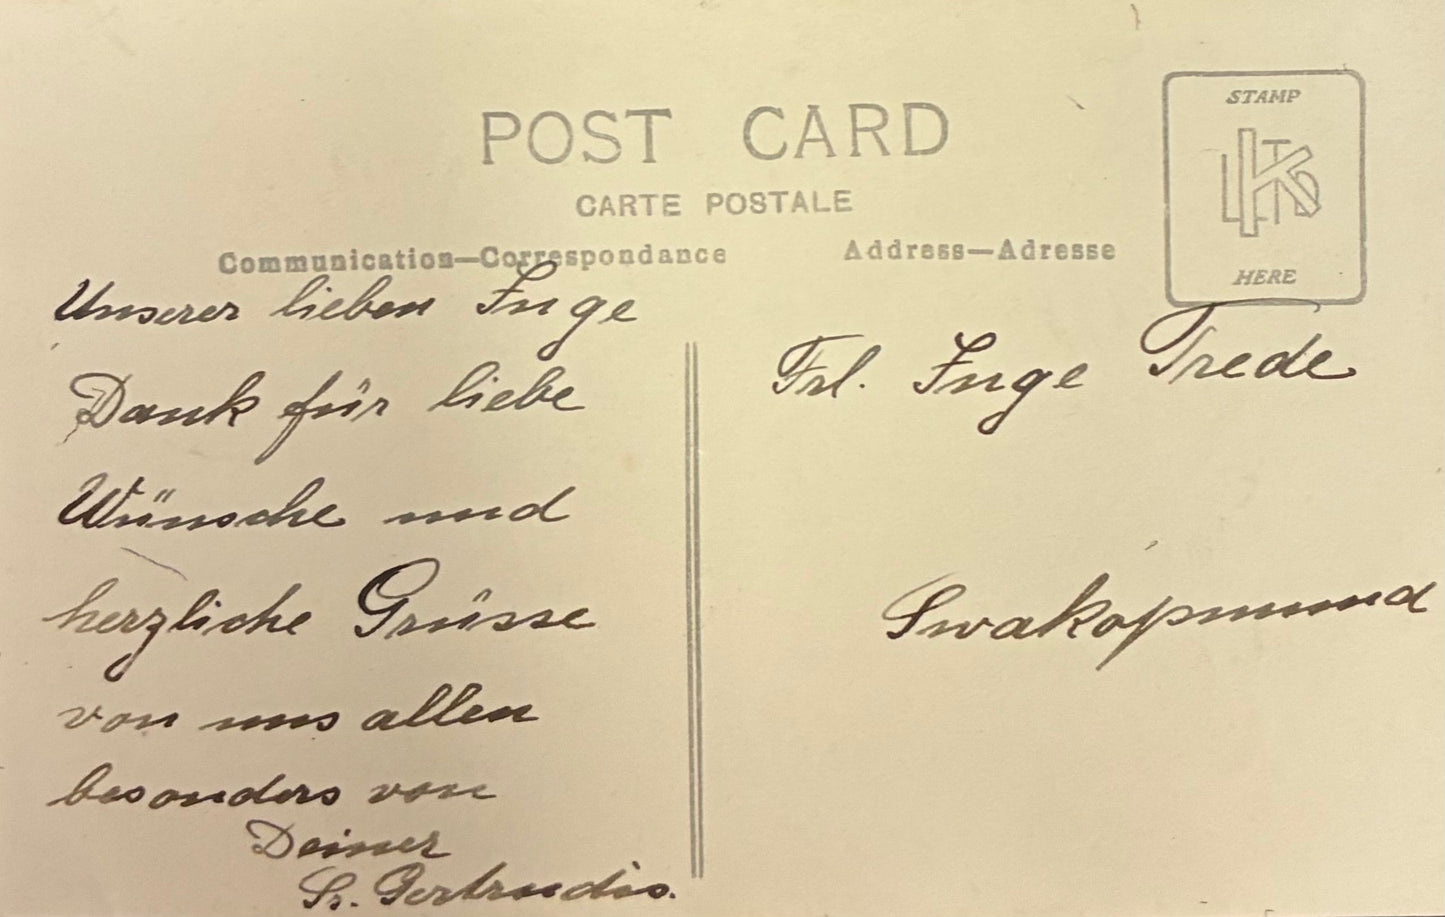 POST CARD
CARTE POSTALE
Communication—Correspondance
Address—Adresse
STAMP
KLTD
HERE
Unserer lieben Inge
Dank für liebe
Wünsche und
herzliche Grüsse
von uns allen
besonders von
Deiner
Sr. Gertrudis.
Frl. Inge Trede
Swakopmund